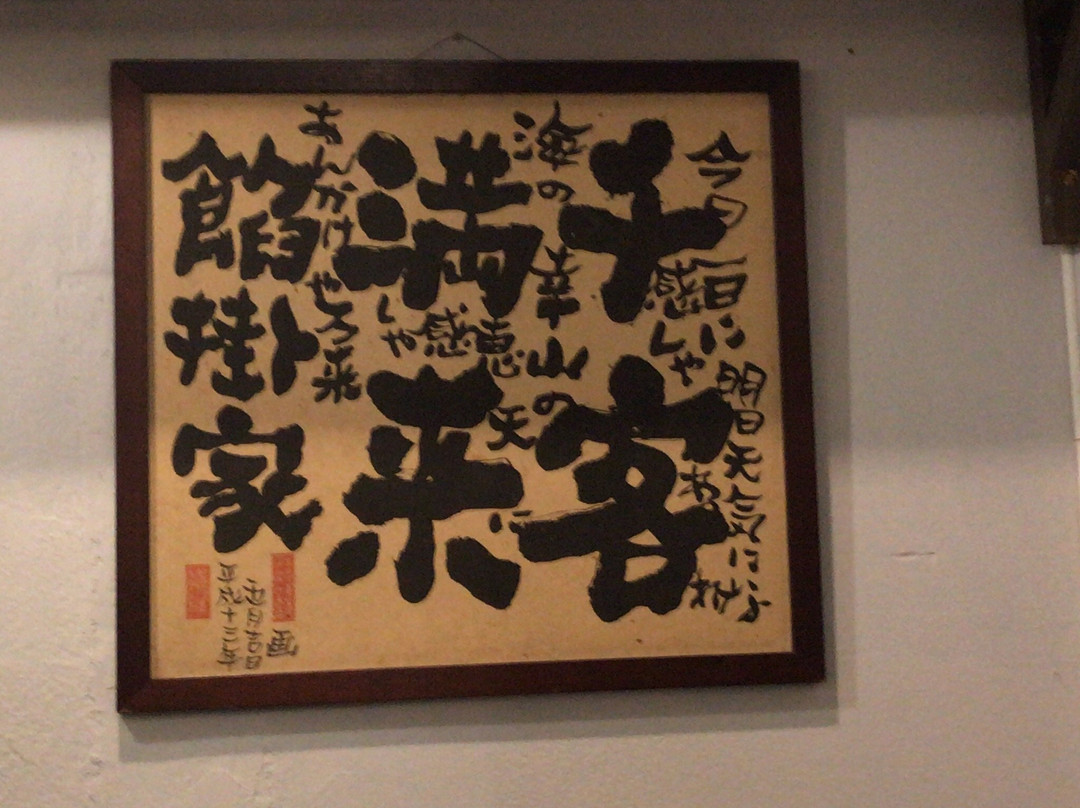 千客
満来
餡掛家
今日一日に
感しや
明日天気になあ
海の幸山の
恵
感しや
天に
あんかけや
来
平成十三年
四月吉日
画